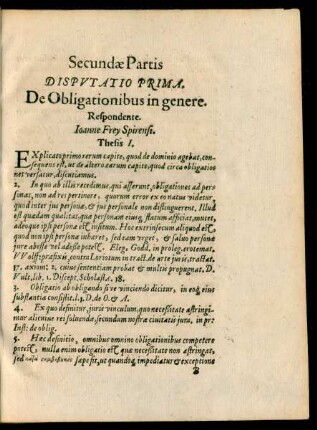 Secundæ Partis
DISPVTATIO PRIMA.
De Obligationibus in genere.
Respondente.
Ioanne Frey Spirensi.
Thesis I.
EXplicato primo rerum capite, quod de dominio agebat, con-
sequens est, ut de altero earum capite, quod circa obligatio
nes versatur, discutiamus.
2. In quo ab illis recedimus, qui asserunt, obligationes ad per
sonas, non ad res pertinere, quorum error ex eo natus videtur
quod inter jus personæ, & jus personale non distinguerent. Illud
est quædam qualitas, quæ personam ejusq́, statum afficiat, mutet,
adeoque ipsi personæ est insitum. Hoc extrinsecum aliquod est
quod non ipsi personæ inhæret, sed eam urget, & salvo personæ
jure abesse vel adesse potest. Eleg. Godd. in proleg. erotemat.
VVolffgrasixis, contra Loriotum in tract. de arte juris, tractat.
17. axiom: 2. cuius sententiam probat & multis propugnat. D.
Vult. lib. 1. Discept. Scholast. c. 38.
3. Obligatio ab obligando sive vinciendo dicitur, in eoq́, eius
substantia consistit. l. 3. D. de O. & A.
4. Ex quo definitur, juris vinculum, quo necessitate astringi-
mur alicuius rei solvendæ, secundum nostræ civitatis jura, in pr:
Inst: de oblig.
5. Hæc definitio, omnibus omnino obligationibus competere
potest, nulla enim obligatio est, quæ necessitate non astringat,
sed sæpe fit, ut quandoq́, impediatur & exceptione